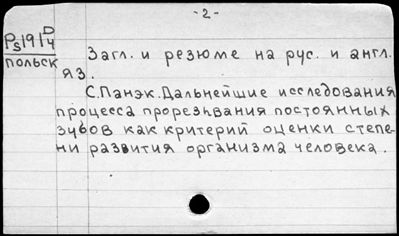 -2-
Ps191 D/4
польск
Загл. и резюме на рус. и англ.
яз.
С.Панэк.Дальнейшие исследования
процесса прорезывания постоянных
зубов как критерий оценки степе
ни развития организма человека.